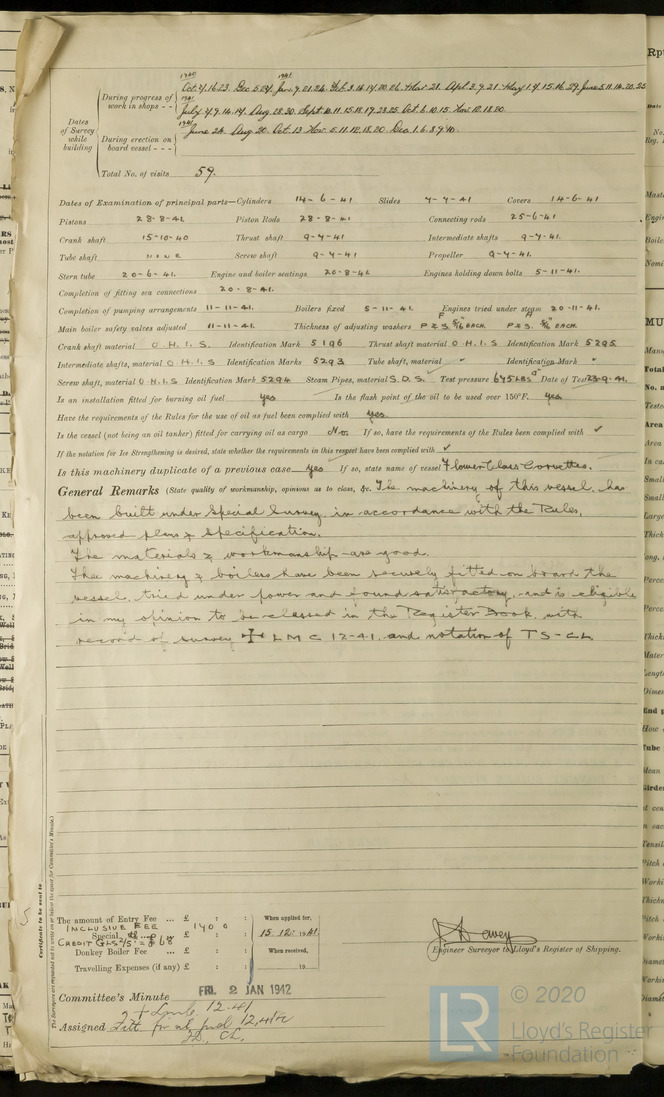 1940 1941
During progress of work in shops - - Oct. 4.16.23 Dec 5.24 Jan. 9.21.24. Feb. 3.14.17.20.26. Mar 28. Apl. 3.9.21. May 1.7.15.16.29 June 5.11.14.20.25
1941
July 4.9.14.17. Aug. 28.30. Sept. 10.11.15.18.19.23.25 Oct. 6.10.15 Nov. 12.18.20.
Dates of Survey while building
During erection on board vessel - - - 1941 June 24. Aug. 20. Oct. 13 Nov. 5.11.12.18.20 Dec. 1.6.8.9.10.
Total No. of visits 59.
Dates of Examination of principal parts—Cylinders 14-6-41 Slides 4-7-41 Covers 14-6-41
Pistons 28-8-41. Piston Rods 28-8-41 Connecting rods 25-6-41
Crank shaft 15-10-40 Thrust shaft 9-4-41 Intermediate shafts 9-4-41.
Tube shaft NONE Screw shaft 9-4-41 Propeller 9-4-41.
Stern tube 20-6-41. Engine and boiler seatings 20-8-41 Engines holding down bolts 5-11-41.
Completion of fitting sea connections 20-8-41.
Completion of pumping arrangements 11-11-41. Boilers fixed 5-11-41. Engines tried under steam 20-11-41.
Main boiler safety valves adjusted 11-11-41. Thickness of adjusting washers F P & S 5/16" EACH. A P & S. 5/16" EACH.
Crank shaft material O.H.I.S. Identification Mark 5196 Thrust shaft material O.H.I.S Identification Mark 5295
Intermediate shafts, material O.H.I.S Identification Marks 5293 Tube shaft, material " Identification Mark "
Screw shaft, material O.H.I.S Identification Mark 5294 Steam Pipes, material S.D.S. Test pressure 675 LBS □" Date of Test 23-9-41.
Is an installation fitted for burning oil fuel yes Is the flash point of the oil to be used over 150°F. yes
Have the requirements of the Rules for the use of oil as fuel been complied with yes.
Is the vessel (not being an oil tanker) fitted for carrying oil as cargo No. If so, have the requirements of the Rules been complied with ✓
If the notation for Ice Strengthening is desired, state whether the requirements in this respect have been complied with ✓
Is this machinery duplicate of a previous case yes If so, state name of vessel Flower Class Corvettes.
General Remarks (State quality of workmanship, opinions as to class, &c. The machinery of this vessel has
been built under Special Survey in accordance with the Rules,
approved plans & specification.
The materials & workmanship are good.
The machinery & boilers have been securely fitted on board the
vessel, tried under power and found satisfactory, and is eligible
in my opinion to be classed in the Register Book, with
record of survey ✠ LMC 12-41. and notation of TS-CL
Certificate to be sent to
(The Surveyors are requested not to write on or below the space for Committee's Minute.)
The amount of Entry Fee ... £ : : When applied for,
INCLUSIVE FEE
Special ... £ 140 0 15.12.1941.
CREDIT GLS 2/5 = £68
Donkey Boiler Fee ... £ : : When received,
Travelling Expenses (if any) £ : : 19
Engineer Surveyor to Lloyd's Register of Shipping.
Committee's Minute FRI. 2 JAN 1942
+ Lmc 12.41
Assigned
© 2020
LR
Lloyd's Register
Foundation